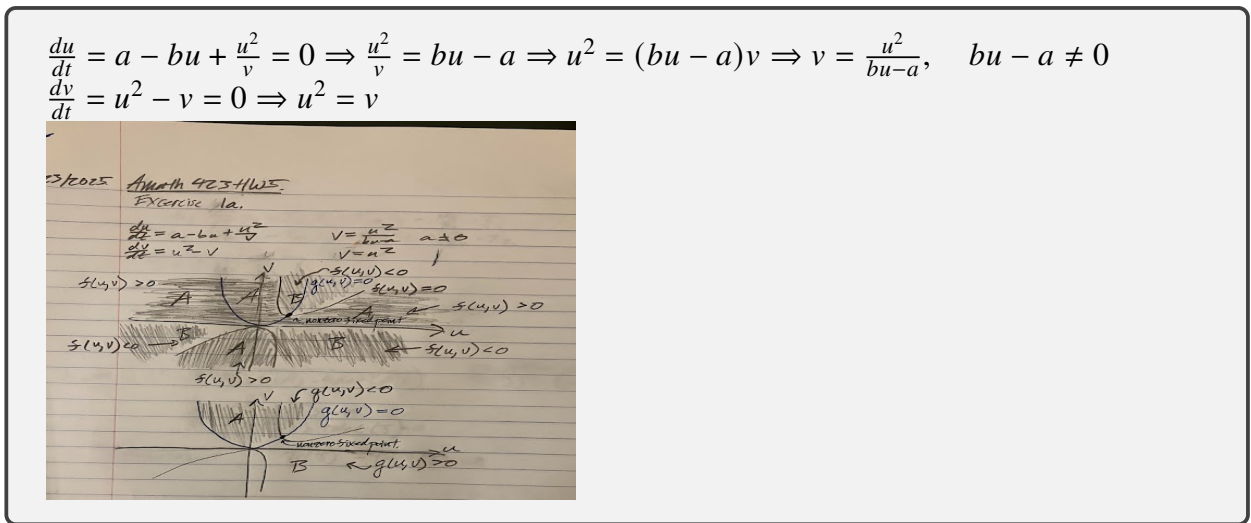 du/dt = a − bu + u²/v = 0 ⇒ u²/v = bu − a ⇒ u² = (bu − a)v ⇒ v = u²/(bu−a), bu − a ≠ 0
dv/dt = u² − v = 0 ⇒ u² = v
23/2025 Amath 423 HW5.
Excercise 1a.
du/dt = a - bu + u²/v v = u²/(bu-a) a≠0
dv/dt = u² - v v = u²
v f(u,v)<0
f(u,v)>0 g(u,v)=0 f(u,v)=0
A A B A f(u,v)>0
nonzero fixed point
u
B A B
f(u,v)<0 f(u,v)<0
f(u,v)>0
v g(u,v)<0
A g(u,v)=0
nonzero fixed point. u
B g(u,v)>0